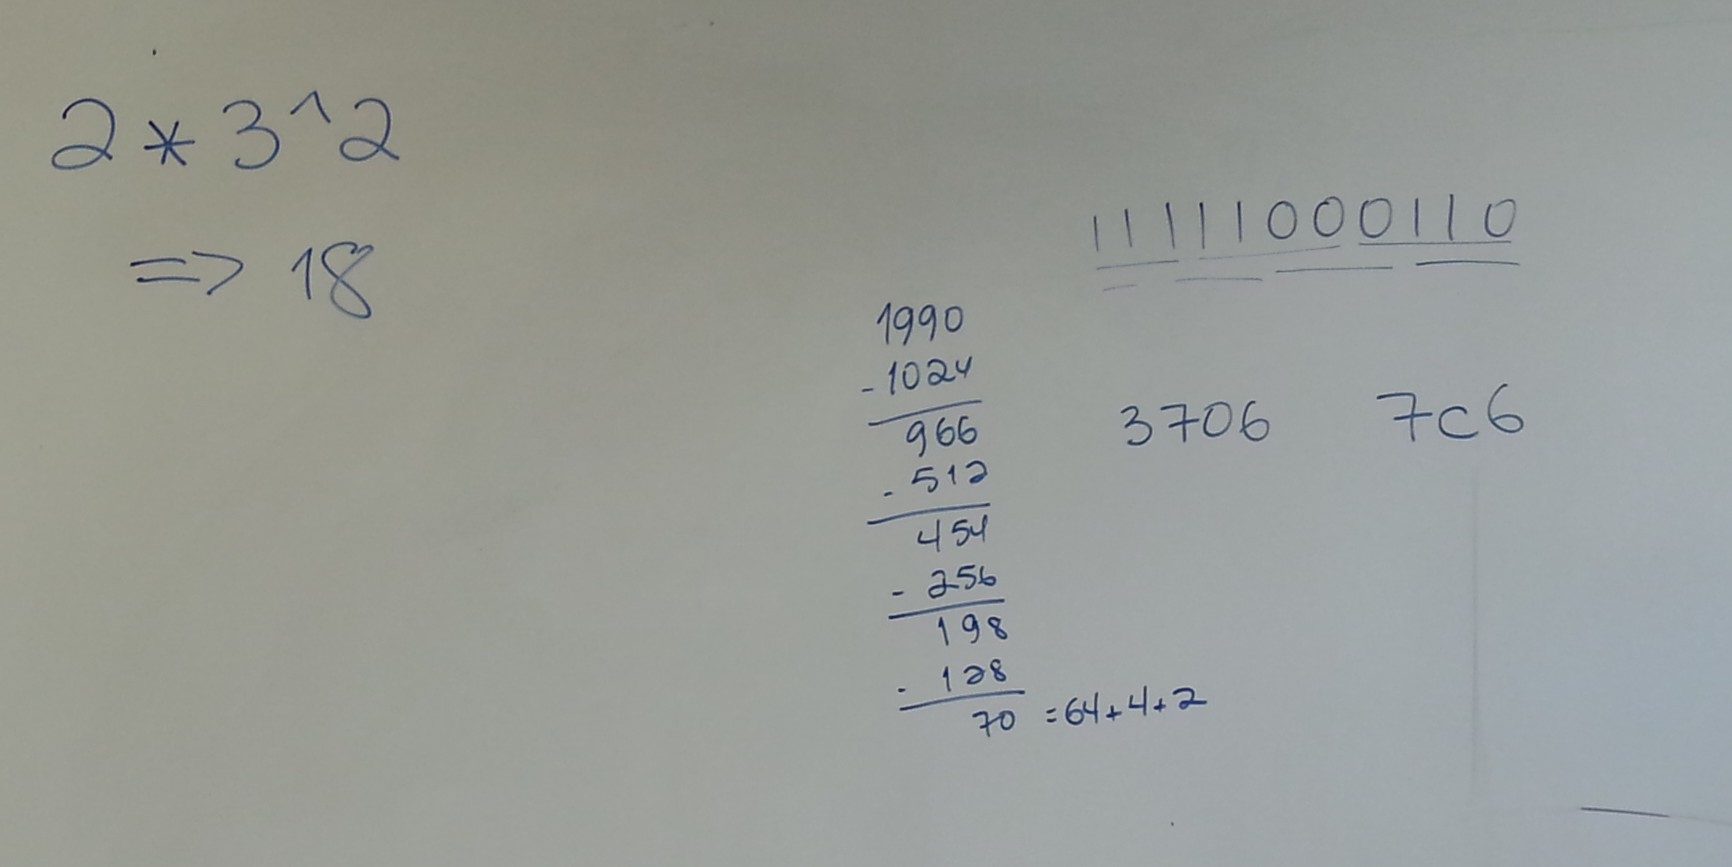 2 * 3 ^ 2
=> 18
11111000110
1990
- 1024
966
- 512
454
- 256
198
- 128
70 = 64 + 4 + 2
3706 7c6